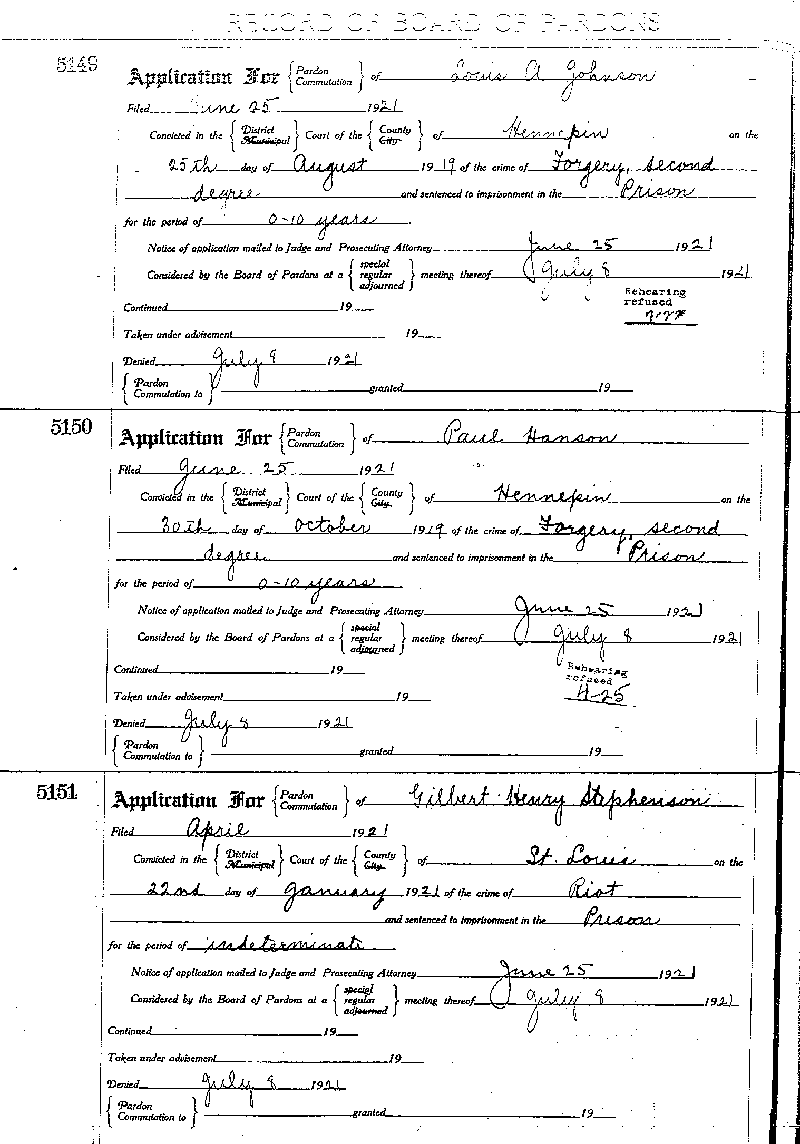 RECORD OF BOARD OF PARDONS
5149
Application For { Pardon Commutation } of Louis A Johnson
Filed June 25 1921
Convicted in the { District Municipal } Court of the { County City } of Hennepin on the
25th day of August 1919 of the crime of Forgery, second
degree and sentenced to imprisonment in the Prison
for the period of 0-10 years
Notice of application mailed to Judge and Prosecuting Attorney June 25 1921
Considered by the Board of Pardons at a { special regular adjourned } meeting thereof July 8 1921
Rehearing
refused
Continued 19
Taken under advisement 19
Denied July 8 1921
{ Pardon Commutation to } granted 19
5150
Application For { Pardon Commutation } of Paul Hanson
Filed June 25 1921
Convicted in the { District Municipal } Court of the { County City } of Hennepin on the
30th day of October 1919 of the crime of Forgery, second
degree and sentenced to imprisonment in the Prison
for the period of 0-10 years
Notice of application mailed to Judge and Prosecuting Attorney June 25 1921
Considered by the Board of Pardons at a { special regular adjourned } meeting thereof July 8 1921
Rehearing
refused
4-25
Continued 19
Taken under advisement 19
Denied July 8 1921
{ Pardon Commutation to } granted 19
5151
Application For { Pardon Commutation } of Gilbert Henry Stephenson
Filed April 1921
Convicted in the { District Municipal } Court of the { County City } of St. Louis on the
22nd day of January 1921 of the crime of Riot
and sentenced to imprisonment in the Prison
for the period of indeterminate
Notice of application mailed to Judge and Prosecuting Attorney June 25 1921
Considered by the Board of Pardons at a { special regular adjourned } meeting thereof July 8 1921
Continued 19
Taken under advisement 19
Denied July 8 1921
{ Pardon Commutation to } granted 19